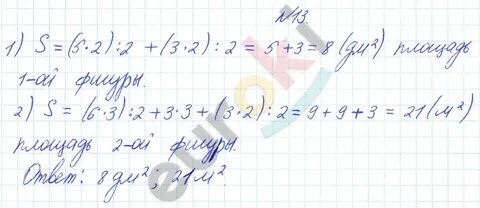 №13.
1) S = (5·2):2 + (3·2):2 = 5+3=8 (дм²) площадь
1-ой фигуры.
2) S = (6·3):2+3·3+(3·2):2=9+9+3=21(м²)
площадь 2-ой фигуры.
Ответ: 8 дм²; 21 м².
euroki